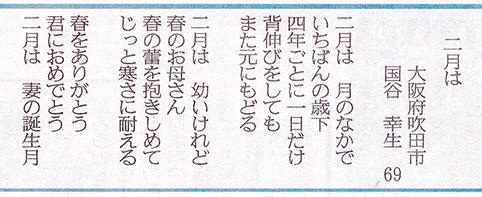 二月は
大阪府吹田市
国谷　幸生　69
二月は　月のなかで
いちばんの歳下
四年ごとに一日だけ
背伸びをしても
また元にもどる
二月は　幼いけれど
春のお母さん
春の蕾を抱きしめて
じっと寒さに耐える
春をありがとう
君におめでとう
二月は　妻の誕生月